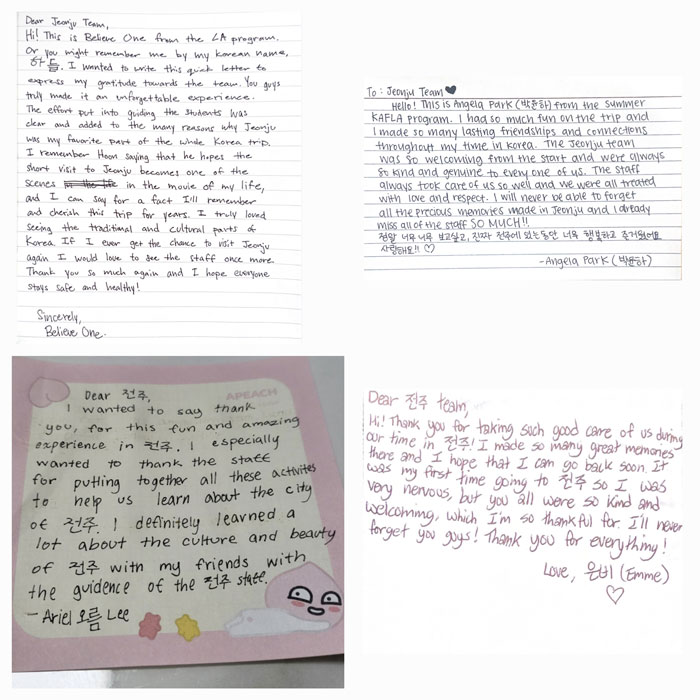 Dear Jeonju Team,
Hi! This is Believe One from the LA program.
Or you might remember me by my korean name,
I wanted to write this quick letter to
express my gratitude towards the team. You guys
truly made it an unforgettable experience.
The effort put into guiding the students was
clear and added to the many reasons why Jeonju
was my favorite part of the whole Korea trip.
I remember Hoon saying that he hopes the
short visit to Jeonju becomes one of the
scenes in the movie of my life,
and I can say for a fact I'll remember
and cherish this trip for years. I truly loved
seeing the traditional and cultural parts of
Korea. If I ever get the chance to visit Jeonju
again I would love to see the staff once more.
Thank you so much again and I hope everyone
stays safe and healthy!
Sincerely,
Believe One.
To: Jeonju Team
Hello! This is Angela Park (박윤하) from the summer
KAFLA program. I had so much fun on the trip and
I made so many lasting friendships and connections
throughout my time in Korea. The Jeonju team
was so welcoming from the start and were always
so kind and genuine to every one of us. The staff
always took care of us so well and we were all treated
with love and respect. I will never be able to forget
all the precious memories made in Jeonju and I already
miss all of the staff SO MUCH!!
정말 너무너무 보고싶고, 진짜 전주에 있는동안 너무 행복하고 즐거웠어요
사랑해요!! ♡
-Angela Park (박윤하)
APEACH
Dear 전주,
I wanted to say thank
you, for this fun and amazing
experience in 전주. I especially
wanted to thank the staff
for putting together all these activites
to help us learn about the city
of 전주. I definitely learned a
lot about the culture and beauty
of 전주 with my friends with
the guidence of the 전주 staff.
- Ariel 오름 Lee
Dear 전주 team,
Hi! Thank you for taking such good care of us during
our time in 전주! I made so many great memories
there and I hope that I can go back soon. It
was my first time going to 전주 so I was
very nervous, but you all were so kind and
welcoming, which I'm so thankful for. I'll never
forget you guys! Thank you for everything!
Love, 은비 (Emme)
♡